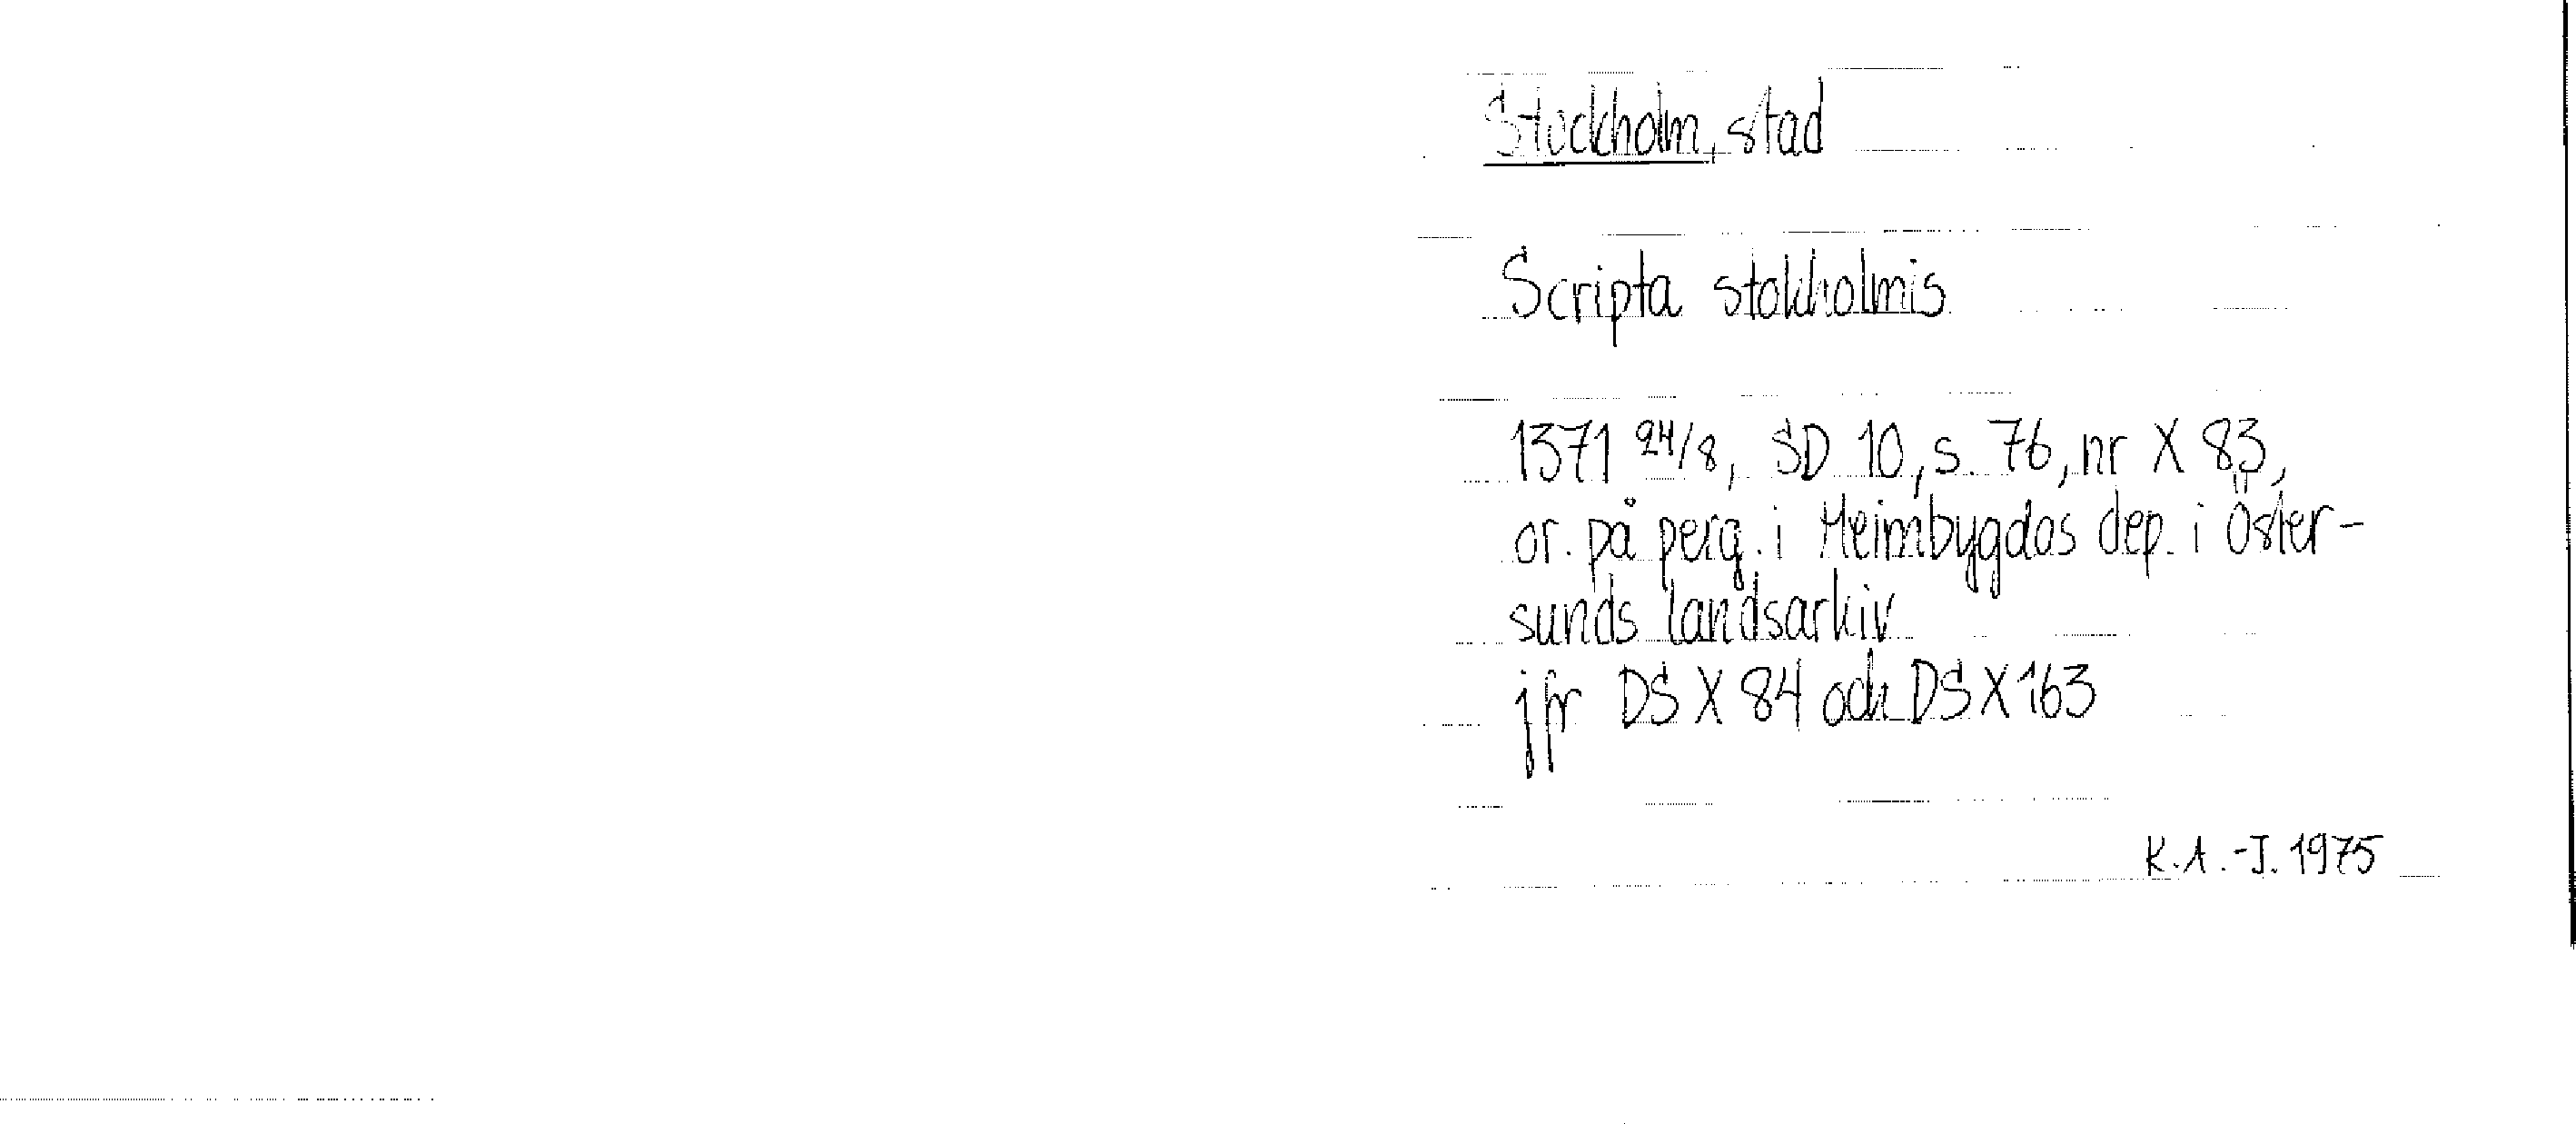 Stockholm, stad
Scripta stokholmis
1371 24/8, SD 10, s. 76, nr X 83,
or. på perg. i Heimbygdas dep. i Öster-
sunds landsarkiv
jfr DS X 84 och DS X 163
K.A.-J. 1975